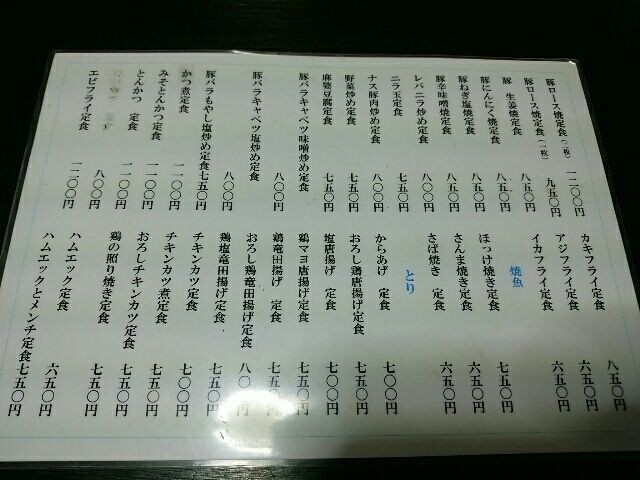 豚ロース焼定食(二枚) 一二〇〇円
豚ロース焼定食(一枚) 九五〇円
豚 生姜焼定食 八五〇円
豚にんにく焼定食 八五〇円
豚ねぎ塩焼定食 八五〇円
豚辛味噌焼定食 八五〇円
レバニラ炒め定食 八〇〇円
ニラ玉定食 七五〇円
ナス豚肉炒め定食 八〇〇円
野菜炒め定食 七五〇円
麻婆豆腐定食 七五〇円
豚バラキャベツ味噌炒め定食 八〇〇円
豚バラキャベツ塩炒め定食 八〇〇円
豚バラもやし塩炒め定食七五〇円
かつ煮定食 一一〇〇円
みそとんかつ定食 一一〇〇円
とんかつ 定食 一一〇〇円
定食 八〇〇円
エビフライ定食 一一〇〇円
カキフライ定食 八五〇円
アジフライ定食 六五〇円
イカフライ定食 六五〇円
焼魚
ほっけ焼き定食 七五〇円
さんま焼き定食 六五〇円
さば焼き 定食 六五〇円
とり
からあげ 定食 七〇〇円
おろし鶏唐揚げ定食 七五〇円
塩唐揚げ 定食 七〇〇円
鶏マヨ唐揚げ定食 七五〇円
鶏竜田揚げ 定食 七〇〇円
おろし鶏竜田揚げ定食 八〇〇円
鶏塩竜田揚げ定食 七五〇円
チキンカツ 定食 七〇〇円
チキンカツ煮定食 七五〇円
おろしチキンカツ定食 七五〇円
鶏の照り焼き定食 七五〇円
ハムエック定食 六五〇円
ハムエックとメンチ定食七五〇円